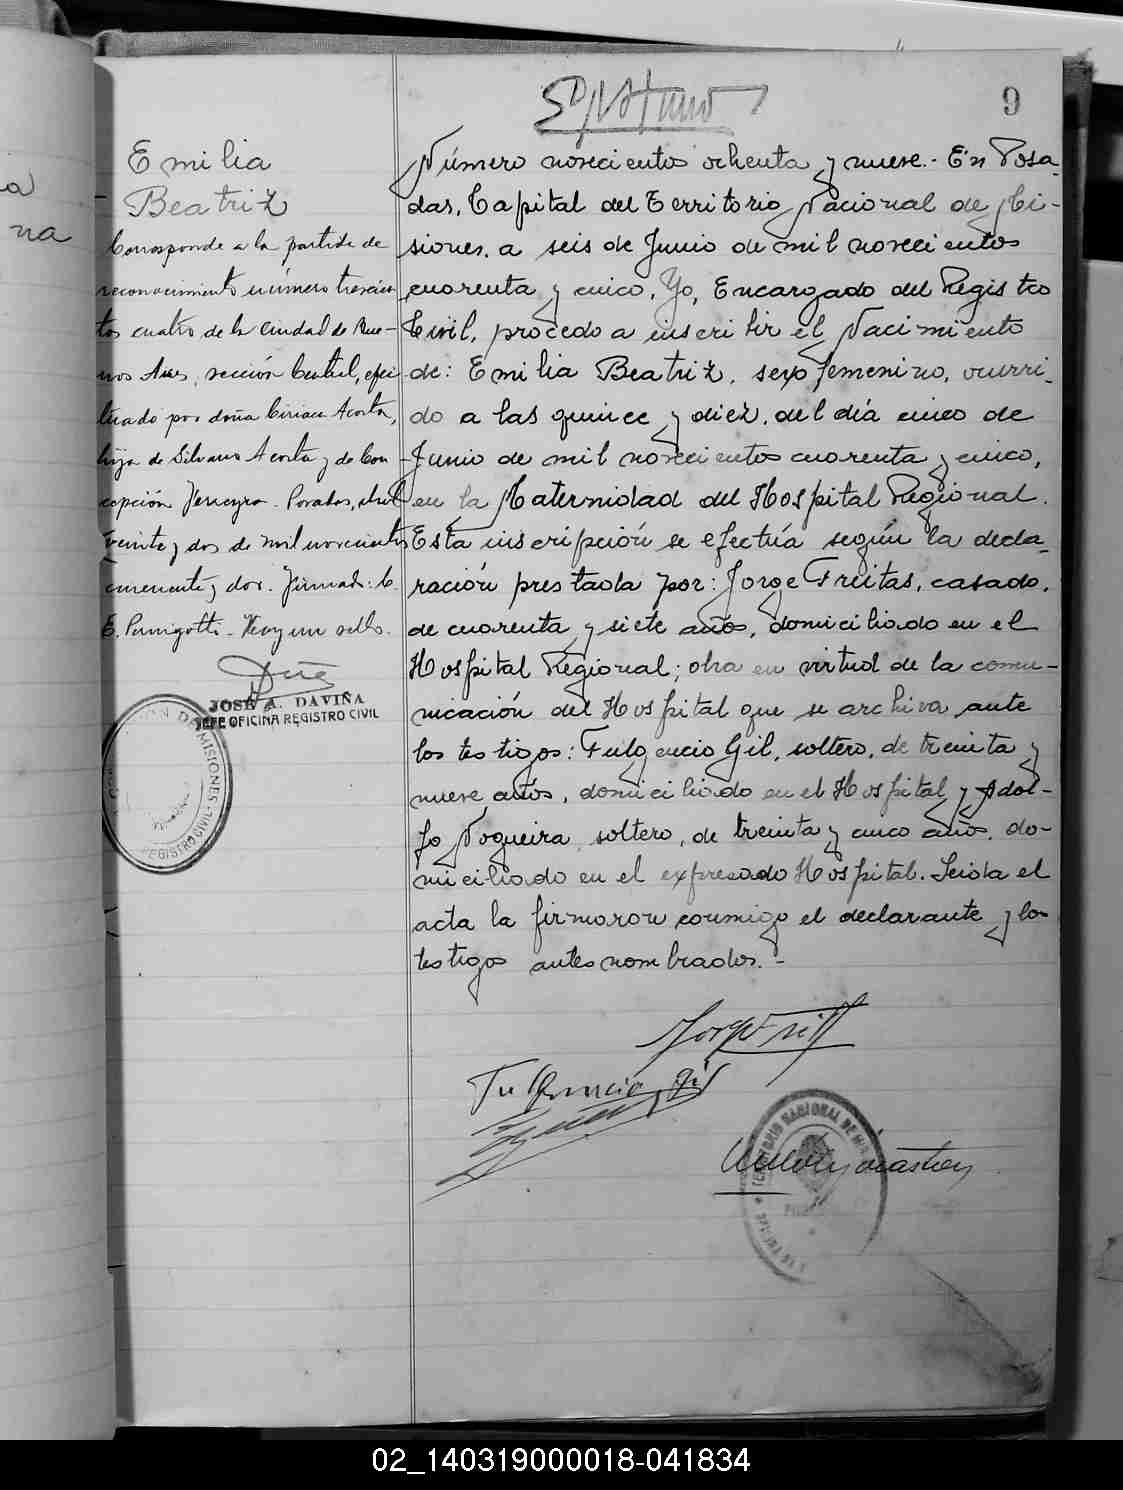 9
Emilia
Beatriz
Corresponde a la partida de
reconocimiento número trescien-
tos cuatro de la Ciudad de Bue-
nos Aires, sección Central, efec
tuado por doña Ciriaca Acosta,
hija de Silvano Acosta y de Con-
cepción Posadas, abril
veinte y dos de mil novecientos
cincuenta y dos. Firmado: C.
E. Hay un sello.
JOSÉ A. DAVIÑA
JEFE OFICINA REGISTRO CIVIL
DE MISIONES
REGISTRO CIVIL
Número novecientos ochenta y nueve.- En Posa-
das, Capital del Territorio Nacional de Mi-
siones, a seis de Junio de mil novecientos
cuarenta y cinco, Yo, Encargado del Registro
Civil, procedo a inscribir el Nacimiento
de: Emilia Beatriz, sexo femenino, ocurri-
do a las quince y diez, del día cinco de
Junio de mil novecientos cuarenta y cinco,
en la Maternidad del Hospital Regional.
Esta inscripción se efectúa según la decla-
ración prestada por: Jorge Freitas, casado,
de cuarenta y siete años, domiciliado en el
Hospital Regional; obra en virtud de la comu-
nicación del Hospital que se archiva, ante
los testigos: Fulgencio Gil, soltero, de treinta y
nueve años, domiciliado en el Hospital y Adol-
fo Nogueira, soltero, de treinta y cinco años, do-
miciliado en el expresado Hospital. Leida el
acta la firmaron conmigo el declarante y los
testigos antes nombrados.-
Fulgencio Gil
TERRITORIO NACIONAL DE MISIONES
02_140319000018-041834